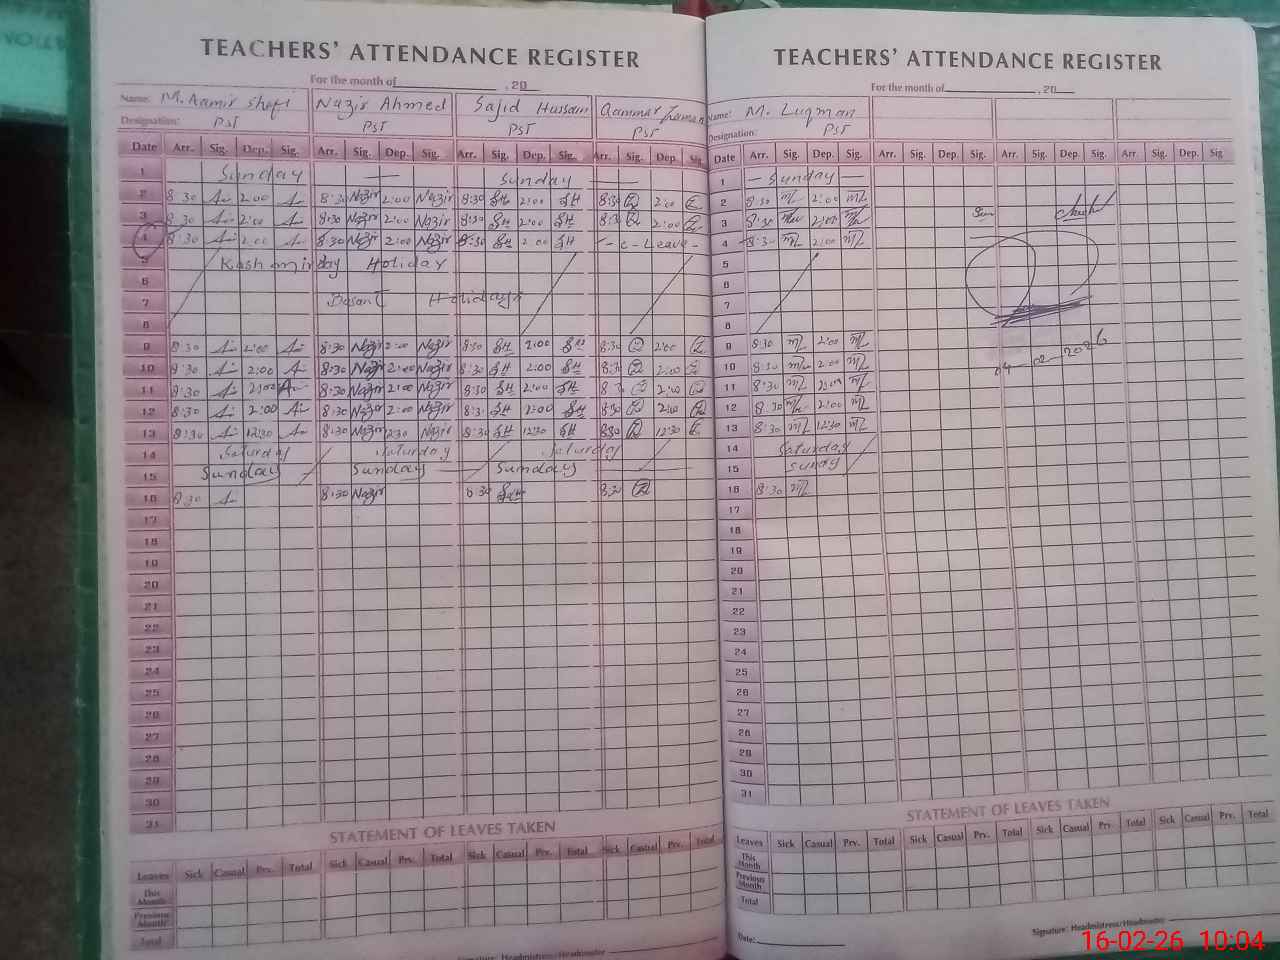 TEACHERS' ATTENDANCE REGISTER
For the month of , 20
Name: M. Aamir Shafi Nazir Ahmed Sajid Hussain Qammar
Designation: PST PST PST PST
Date Arr. Sig. Dep. Sig. Arr. Sig. Dep. Sig. Arr. Sig. Dep. Sig. Arr. Sig. Dep. Sig.
1 Sunday Sunday
2 8 30 2:00 8:30 Nazir 2:00 Nazir 8:30 SH 2:00 SH 8:30 2:00
3 8 30 2:00 8:30 Nazir 2:00 Nazir 8:30 SH 2:00 SH 8:30 2:00
4 8:30 2:00 8:30 Nazir 2:00 Nazir 8:30 SH 2:00 SH - C - Leave -
5 Kashmir day Holiday
6
7 Basant Holidays
8
9 8:30 2:00 8:30 Nazir 2:00 Nazir 8:30 SH 2:00 SH 8:30 2:00
10 8:30 2:00 8:30 Nazir 2:00 Nazir 8:30 SH 2:00 SH 8:30 2:00
11 8:30 2:00 8:30 Nazir 2:00 Nazir 8:30 SH 2:00 SH 8:30 2:00
12 8:30 2:00 8:30 Nazir 2:00 Nazir 8:30 SH 2:00 SH 8:30 2:00
13 8:30 12:30 8:30 Nazir 12:30 Nazir 8:30 SH 12:30 SH 8:30 12:30
14 Saturday Saturday Saturday
15 Sunday Sunday Sunday
16 8:30 8:30 Nazir 8:30 SH 8:30
17
18
19
20
21
22
23
24
25
26
27
28
29
30
31
STATEMENT OF LEAVES TAKEN
Leaves Sick Casual Prv. Total Sick Casual Prv. Total Sick Casual Prv. Total Sick Casual Prv. Total
This Month
Previous Month
Total
Signature: Headmistress/Headmaster
TEACHERS' ATTENDANCE REGISTER
For the month of , 20
Name: M. Luqman
Designation: PST
Date Arr. Sig. Dep. Sig. Arr. Sig. Dep. Sig. Arr. Sig. Dep. Sig. Arr. Sig. Dep. Sig
1 - Sunday -
2 8:30 2:00
3 8:30 2:00
4 8:30 2:00
5
6
7
8
9 8:30 2:00
04-02-2026
10 8:30 2:00
11 8:30 2:00
12 8:30 2:00
13 8:30 12:30
14 Saturday
15 Sunday
16 8:30
17
18
19
20
21
22
23
24
25
26
27
28
29
30
31
STATEMENT OF LEAVES TAKEN
Leaves Sick Casual Prv. Total Sick Casual Prv. Total Sick Casual Prv. Total Sick Casual Prv. Total
This Month
Previous Month
Total
Date: Signature: Headmistress/Headmaster
16-02-26 10:04